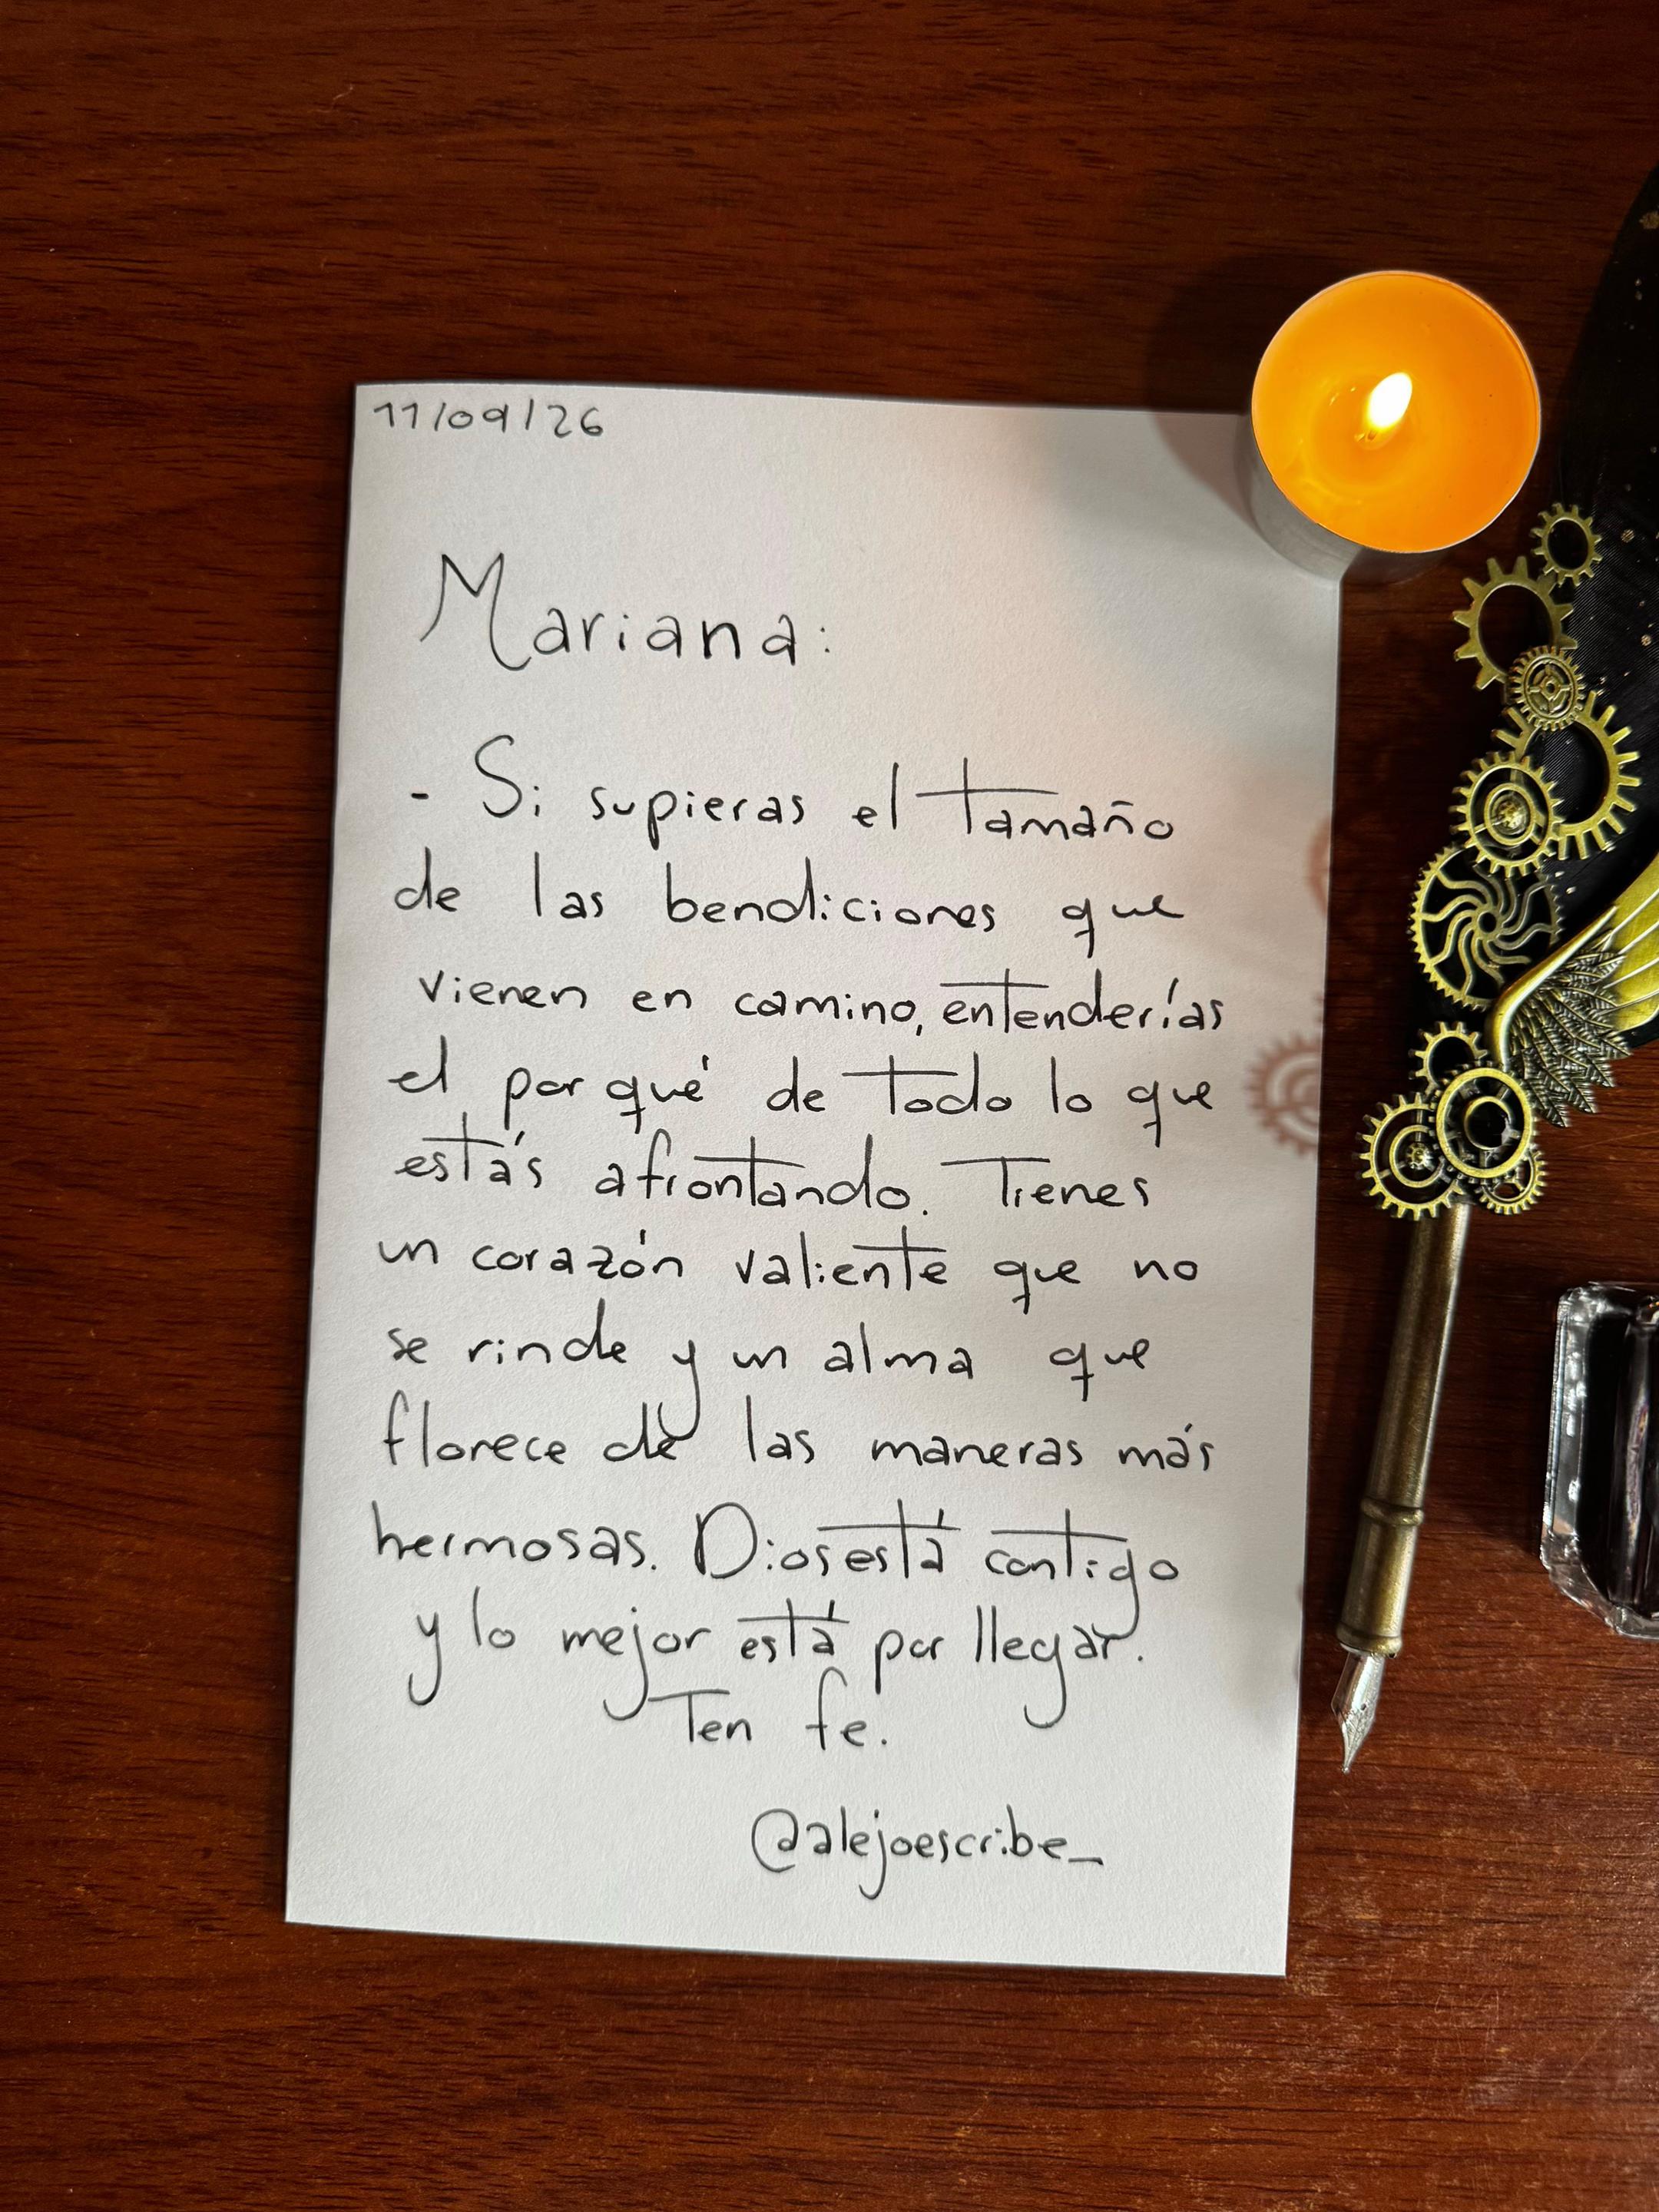 11/09/26
Mariana:
- Si supieras el tamaño
de las bendiciones que
vienen en camino, entenderías
el por qué de todo lo que
estás afrontando. Tienes
un corazón valiente que no
se rinde y un alma que
florece de las maneras más
hermosas. Dios está contigo
y lo mejor está por llegar.
Ten fe.
@alejoescribe_